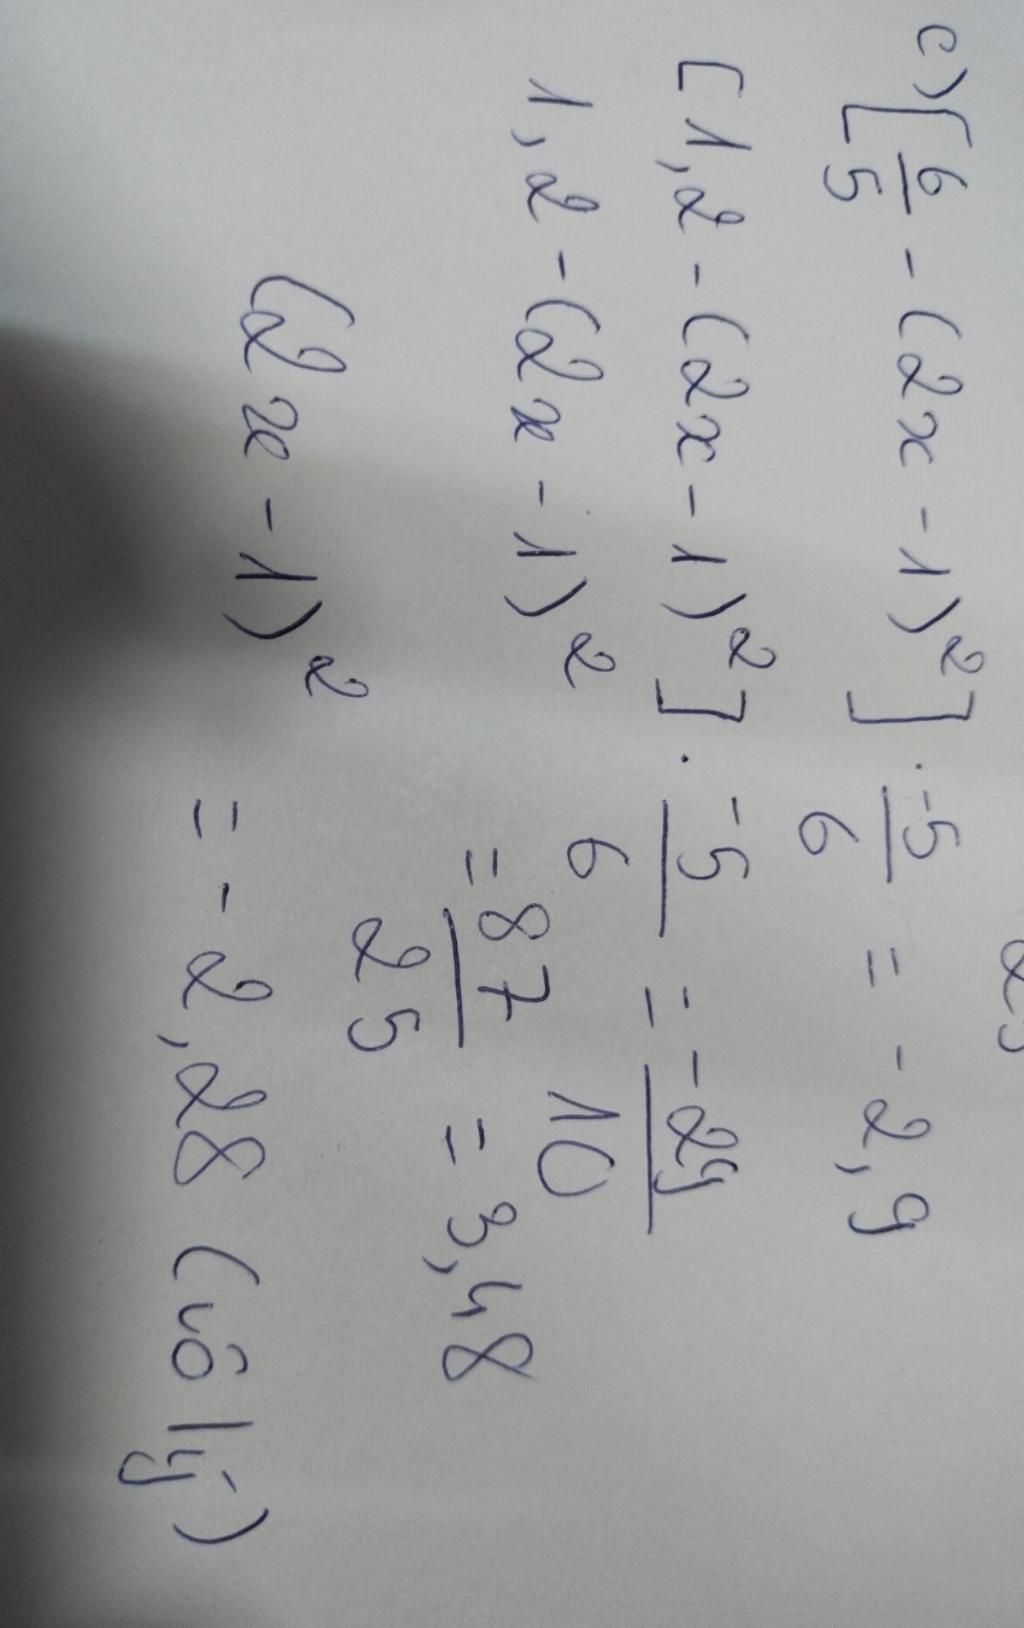 25
c) [6/5 - (2x - 1)²] · -5/6 = -2,9
[1,2 - (2x - 1)²] · -5/6 = -29/10
1,2 - (2x - 1)² = 87/25 = 3,48
(2x - 1)² = -2,28 (vô lý)